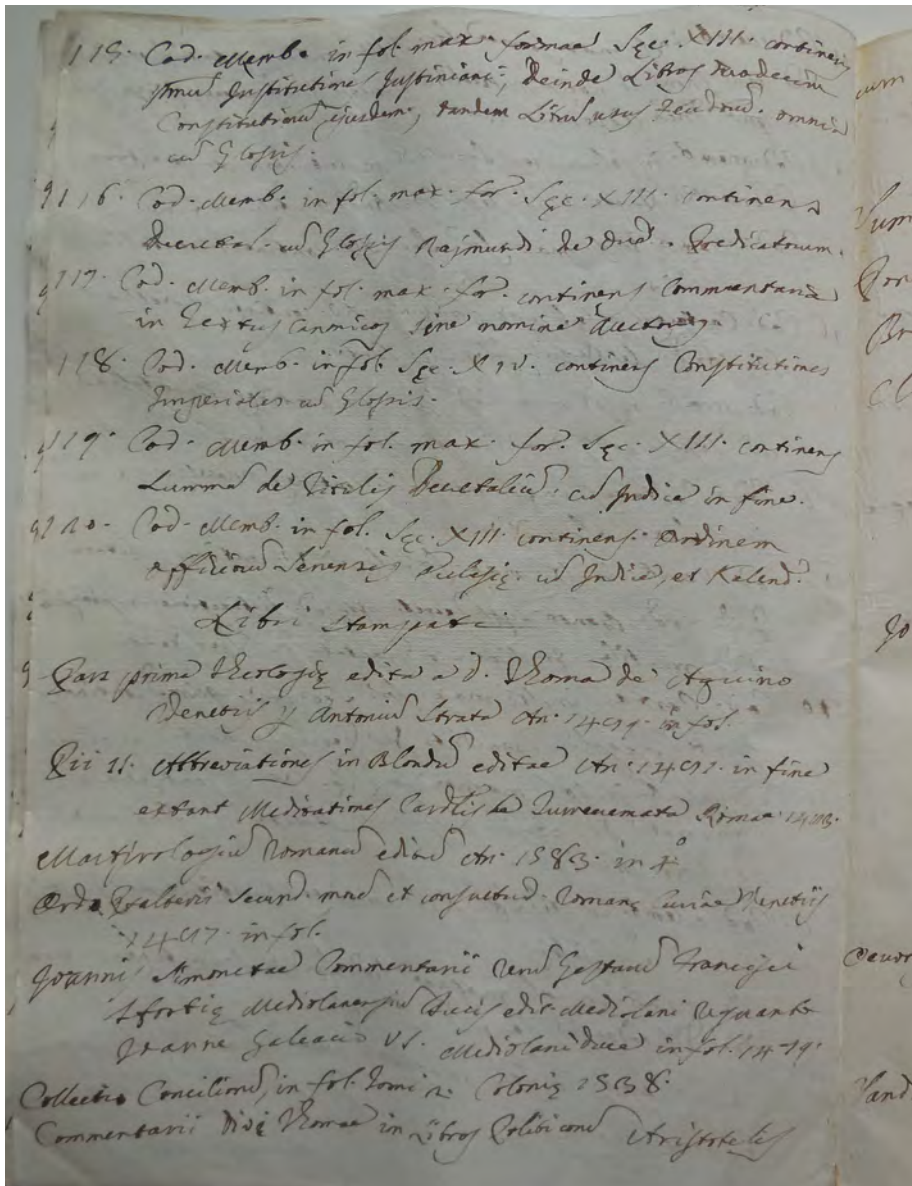 115. Cod. Memb. in fol. max. formae Sęc. XIII. continens
primū Institutiones Justiniani; deinde Libros
Constitutionū ejusdem, tandem Librū usus feudorū. omnia
cū Glossis.
116. Cod. Memb. in fol. max. for. Sęc. XIII. continens
Decretal. cū Glossis Rajmundi de Ord. Predicatorum.
117. Cod. Memb. in fol. max. for. continens Commentaria
in Textus Canonicos sine nomine Auctoris.
118. Cod. Memb. in fol. Sęc. XIV. continens Constitutiones
Imperiales cū Glossis.
119. Cod. Memb. in fol. max. for. Sęc. XIII. continens
Summā de Titulis Decretaliū, cū Indice in fine.
120. Cod. Memb. in fol. Sęc. XIII. continens Ordinem
officiorū Senensis Eclesię cū Indice, et Kalend.
Libri stampati
Pars prima Theologię edita a D. Thoma de Aquino
Venetiis p Antoniū Strata An. in fol.
Pii II. Abbreviationes in Blondū editae An. in fine
extant Meditationes Cardlis de Turrecremata Romae
Martirologiū Romanū editū An. 1583. in 4°
Ordo Psalterii secund. morē et consuetud. Romanę Curiae Venetiis
in fol.
Joannis Simonetae Commentarii rerū Gestarū Francisci
Sfortię Mediolanensiū Ducis edit. Mediolani regnante
Joanne Galeacio VI. Mediolani duce in fol. 1479.
Collectio Conciliorū, in fol. Tomi 2. Colonię 1538.
Commentarii Divi Thomae in Libros Politicorū Aristotelis